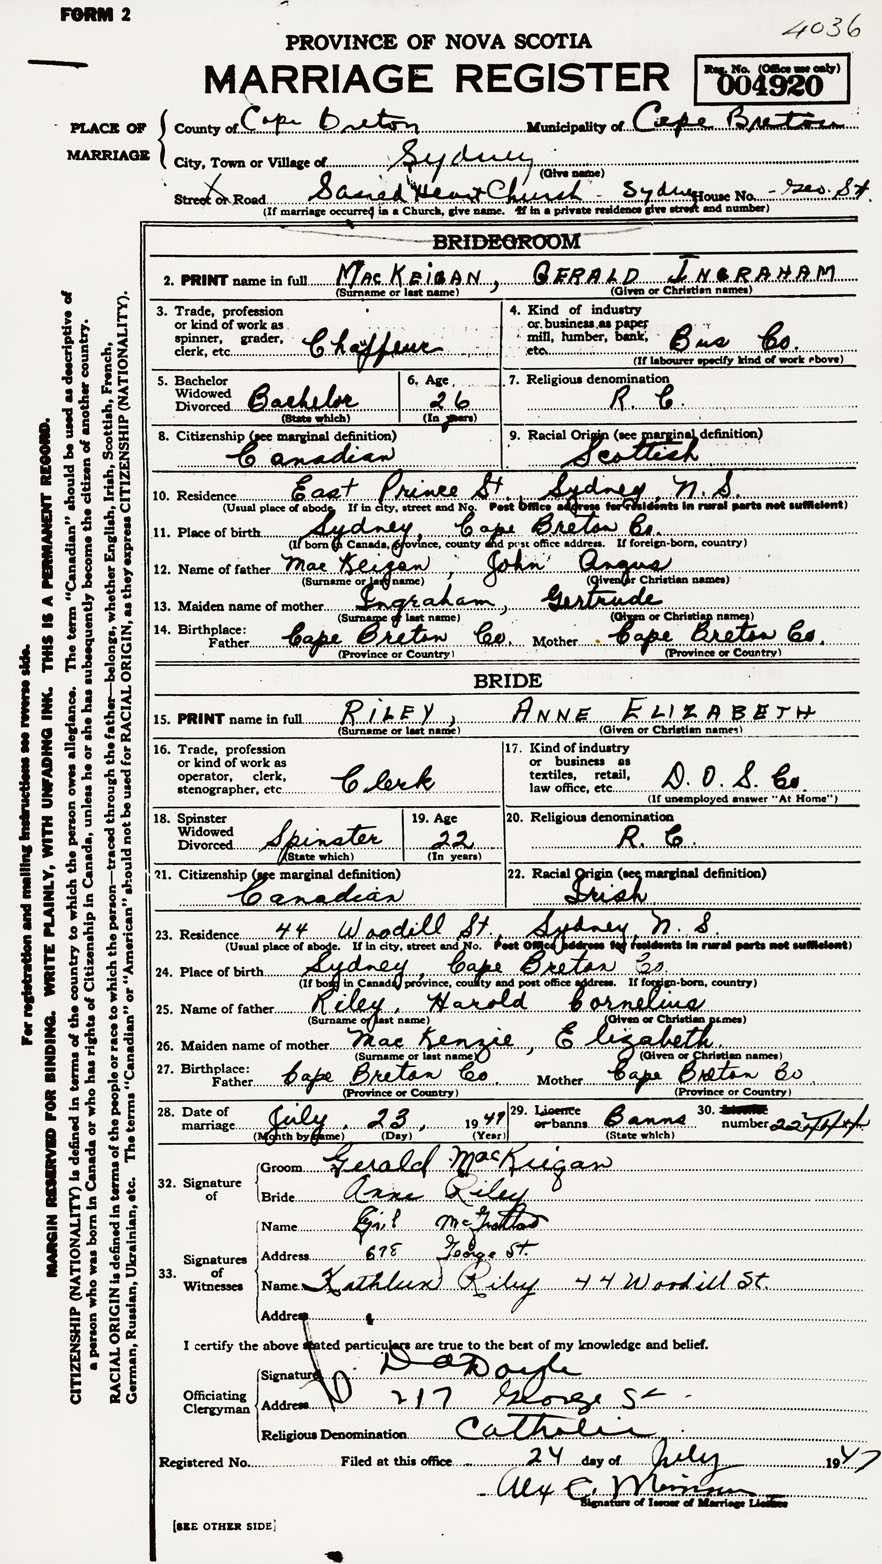 FORM 2
4036
PROVINCE OF NOVA SCOTIA
MARRIAGE REGISTER
Reg. No. (Office use only)
004920
PLACE OF MARRIAGE
County of Cape Breton Municipality of Cape Breton
City, Town or Village of Sydney
(Give name)
Street or Road Sacred Heart Church - Sydney House No. - Geo. St.
(If marriage occurred in a Church, give name. If in a private residence give street and number)
BRIDEGROOM
2. PRINT name in full MacKEIGAN, GERALD INGRAHAM
(Surname or last name) (Given or Christian names)
3. Trade, profession or kind of work as spinner, grader, clerk, etc. Chaffeur
4. Kind of industry or business, as paper mill, lumber, bank, etc. Bus Co.
(If labourer specify kind of work above)
5. Bachelor Widowed Divorced Bachelor
(State which)
6. Age 26
(In years)
7. Religious denomination R. C.
8. Citizenship (see marginal definition) Canadian
9. Racial Origin (see marginal definition) Scottish
10. Residence East Prince St., Sydney, N. S.
(Usual place of abode. If in city, street and No. Post Office address for residents in rural parts not sufficient)
11. Place of birth Sydney, Cape Breton Co.
(If born in Canada, province, county and post office address. If foreign-born, country)
12. Name of father MacKeigan, John Angus
(Surname or last name) (Given or Christian names)
13. Maiden name of mother Ingraham, Gertrude
(Surname or last name) (Given or Christian names)
14. Birthplace: Father Cape Breton Co. Mother Cape Breton Co.
(Province or Country) (Province or Country)
BRIDE
15. PRINT name in full RILEY, ANNE ELIZABETH
(Surname or last name) (Given or Christian names)
16. Trade, profession or kind of work as operator, clerk, stenographer, etc. Clerk
17. Kind of industry or business as textiles, retail, law office, etc. D. O. S. Co.
(If unemployed answer "At Home")
18. Spinster Widowed Divorced Spinster
(State which)
19. Age 22
(In years)
20. Religious denomination R. C.
21. Citizenship (see marginal definition) Canadian
22. Racial Origin (see marginal definition) Irish
23. Residence 44 Woodill St., Sydney, N. S.
(Usual place of abode. If in city, street and No. Post Office address for residents in rural parts not sufficient)
24. Place of birth Sydney, Cape Breton Co.
(If born in Canada province, county and post office address. If foreign-born, country)
25. Name of father Riley, Harold Cornelius
(Surname or last name) (Given or Christian names)
26. Maiden name of mother MacKenzie, Elizabeth
(Surname or last name) (Given or Christian names)
27. Birthplace: Father Cape Breton Co Mother Cape Breton Co
(Province or Country) (Province or Country)
28. Date of marriage July 23 1947
(Month by name) (Day) (Year)
29. Licence or banns Banns
(State which)
30. number
32. Signature of
Groom Gerald MacKeigan
Bride Anne Riley
33. Signatures of Witnesses
Name
Address 678 George St.
Name Kathleen Riley 44 Woodill St.
Address
I certify the above stated particulars are true to the best of my knowledge and belief.
Officiating Clergyman
Signature D A Doyle
Address 217 George St -
Religious Denomination Catholic
Registered No. Filed at this office 24 day of July 1947
Alex C.
Signature of Issuer of Marriage Licence
[SEE OTHER SIDE]
For registration and mailing instructions see reverse side.
MARGIN RESERVED FOR BINDING. WRITE PLAINLY, WITH UNFADING INK. THIS IS A PERMANENT RECORD.
CITIZENSHIP (NATIONALITY) is defined in terms of the country to which the person owes allegiance. The term "Canadian" should be used as descriptive of
a person who was born in Canada or who has rights of Citizenship in Canada, unless he or she has subsequently become the citizen of another country.
RACIAL ORIGIN is defined in terms of the people or race to which the person—traced through the father—belongs, whether English, Irish, Scottish, French,
German, Russian, Ukrainian, etc. The terms "Canadian" or "American" should not be used for RACIAL ORIGIN, as they express CITIZENSHIP (NATIONALITY).